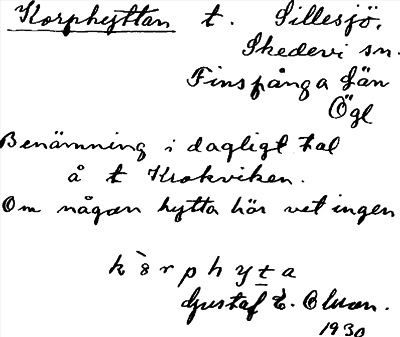 Korphyttan t. Sillesjö,
Skedevi sn.
Finspånga län
Ögl
Benämning i dagligt tal
å t Krokviken.
Om någon hytta här vet ingen
kòrphyta
Gustaf E. Olsson.
1930